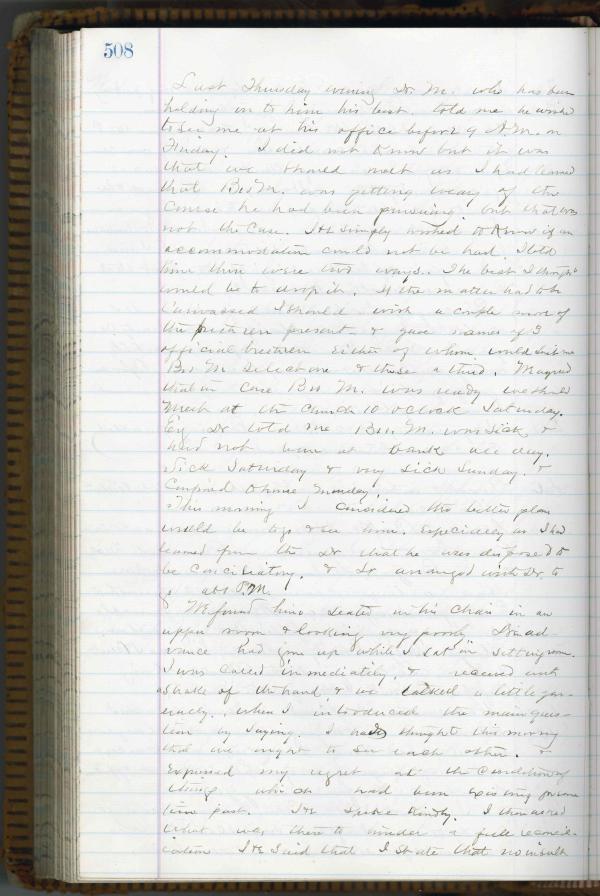 508
Last Thursday evening Dr. M. who has been
holding on to him his best, told me he wished
to see me at his office before 9 A.M. on
Friday. I did not know but it was
that we should meet as I had learned
that Bro M. was getting weary of the
course he had been pursuing, but that was
not the case. He simply wished to know if an
accommodation could not be had. I told
him there were two ways. The best I thought
would be to drop it. If the matter had to be
canvassed I should wish a couple more of
the bretren present & gave names of 3
official brethren either of whom would suit me
Bro M select one & these a third. M agreed
that in case Bro M. was ready we should
meet at the church 10 oclock Saturday.
Ev'g Dr told me Bro. M. was sick &
had not been at bank all day.
Sick Saturday & very sick Sunday. &
Confined to house Monday.
This morning I considered the better plan
would be to go & see him. especially as I had
learned from the Dr that he was disposed to
be conciliatory. & so arranged with Dr. to
go abt P.M.
We found him seated in his chair in an
upper room & looking very poorly. Dr in ad-
vance had gone up while I sat in sitting room.
I was called immediately, & received with
shake of the hand, & we talked a little gen-
erally, when I introduced the main ques-
tion by saying. I had thought this morning
that we ought to see each other. &
expressed my regret at the condition of
things which had been existing for some
time past. He spoke kindly. I then asked
what was there to hinder a full reconcil-
iation He said that I state that no insult